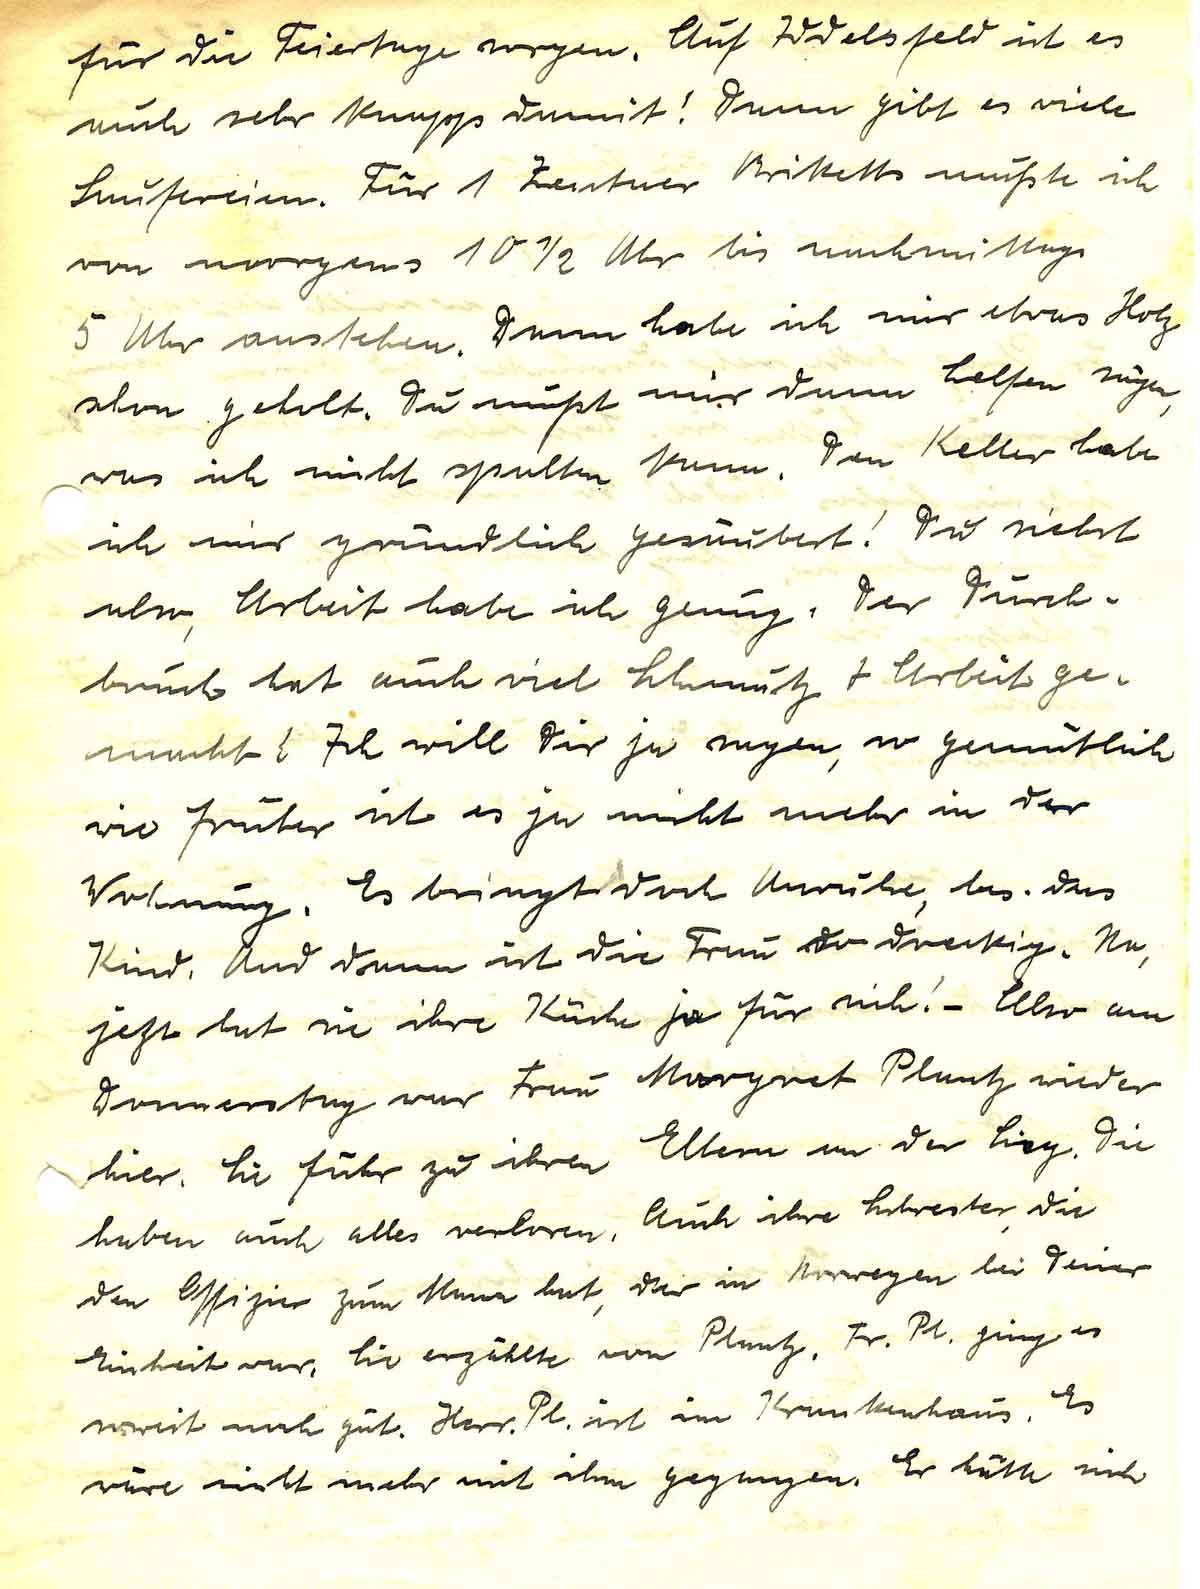 für die Feiertage sorgen. Auf Iddelsfeld ist es
auch sehr knapp damit! Dann gibt es viele
Laufereien. Für 1 Zentner Briketts mußte ich
von morgens 10 1/2 Uhr bis nachmittags
5 Uhr anstehen. Dann habe ich mir etwas Holz
schon geholt. Du mußt mir dann helfen sägen,
was ich nicht spalten kann. Den Keller habe
ich mir gründlich gesäubert! Du siehst
also, Arbeit habe ich genug. Der Durch-
bruch hat auch viel Schmutz + Arbeit ge-
macht! Ich will Dir ja sagen, so gemütlich
wie früher ist es ja nicht mehr in der
Wohnung. Es bringt doch Unruhe, bes. das
Kind. Und dann ist die Frau so dreckig. Na,
jetzt hat sie ihre Küche ja für sich! - Also am
Donnerstag war Frau Margret Plautz wieder
hier. Sie fuhr zu ihren Eltern an der Sieg. Die
haben auch alles verloren. Auch ihre Schwester, die
den Offizier zum Mann hat, der in Norwegen bei Deiner
Einheit war. Sie erzählte von Plautz. Fr. Pl. ging es
soweit noch gut. Herr Pl. ist im Krankenhaus. Es
wäre nicht mehr mit ihm gegangen. Er hätte sich